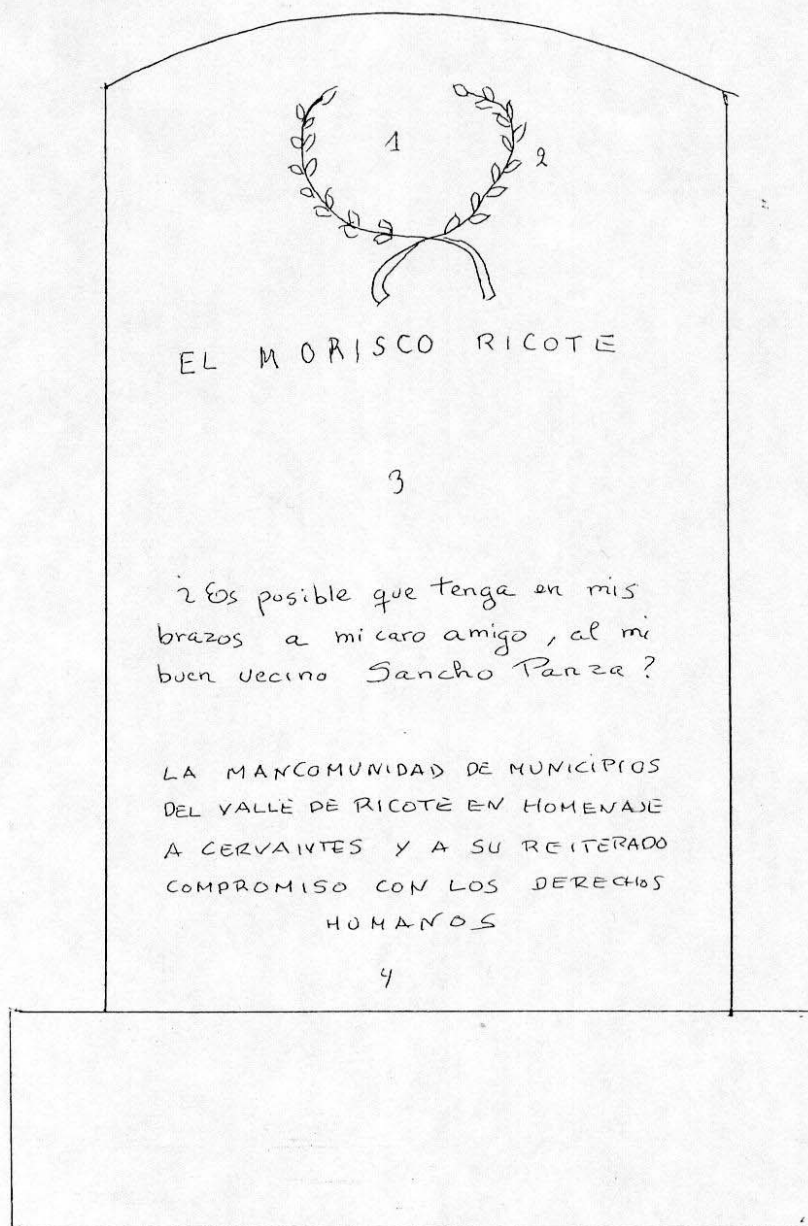 1
2
EL MORISCO RICOTE
3
¿Es posible que tenga en mis
brazos a mi caro amigo, al mi
buen vecino Sancho Panza?
LA MANCOMUNIDAD DE MUNICIPIOS
DEL VALLE DE RICOTE EN HOMENAJE
A CERVANTES Y A SU REITERADO
COMPROMISO CON LOS DERECHOS
HUMANOS
4